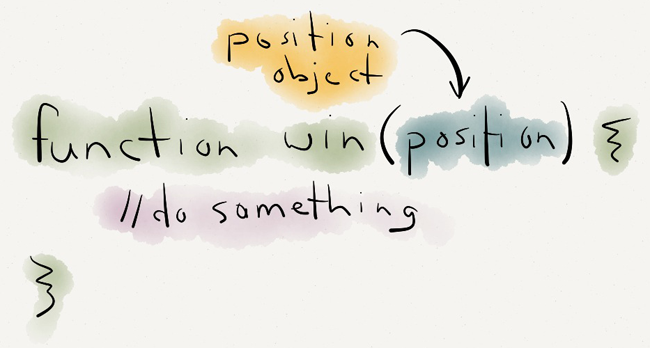 position
object
function win(position) {
//do something
}